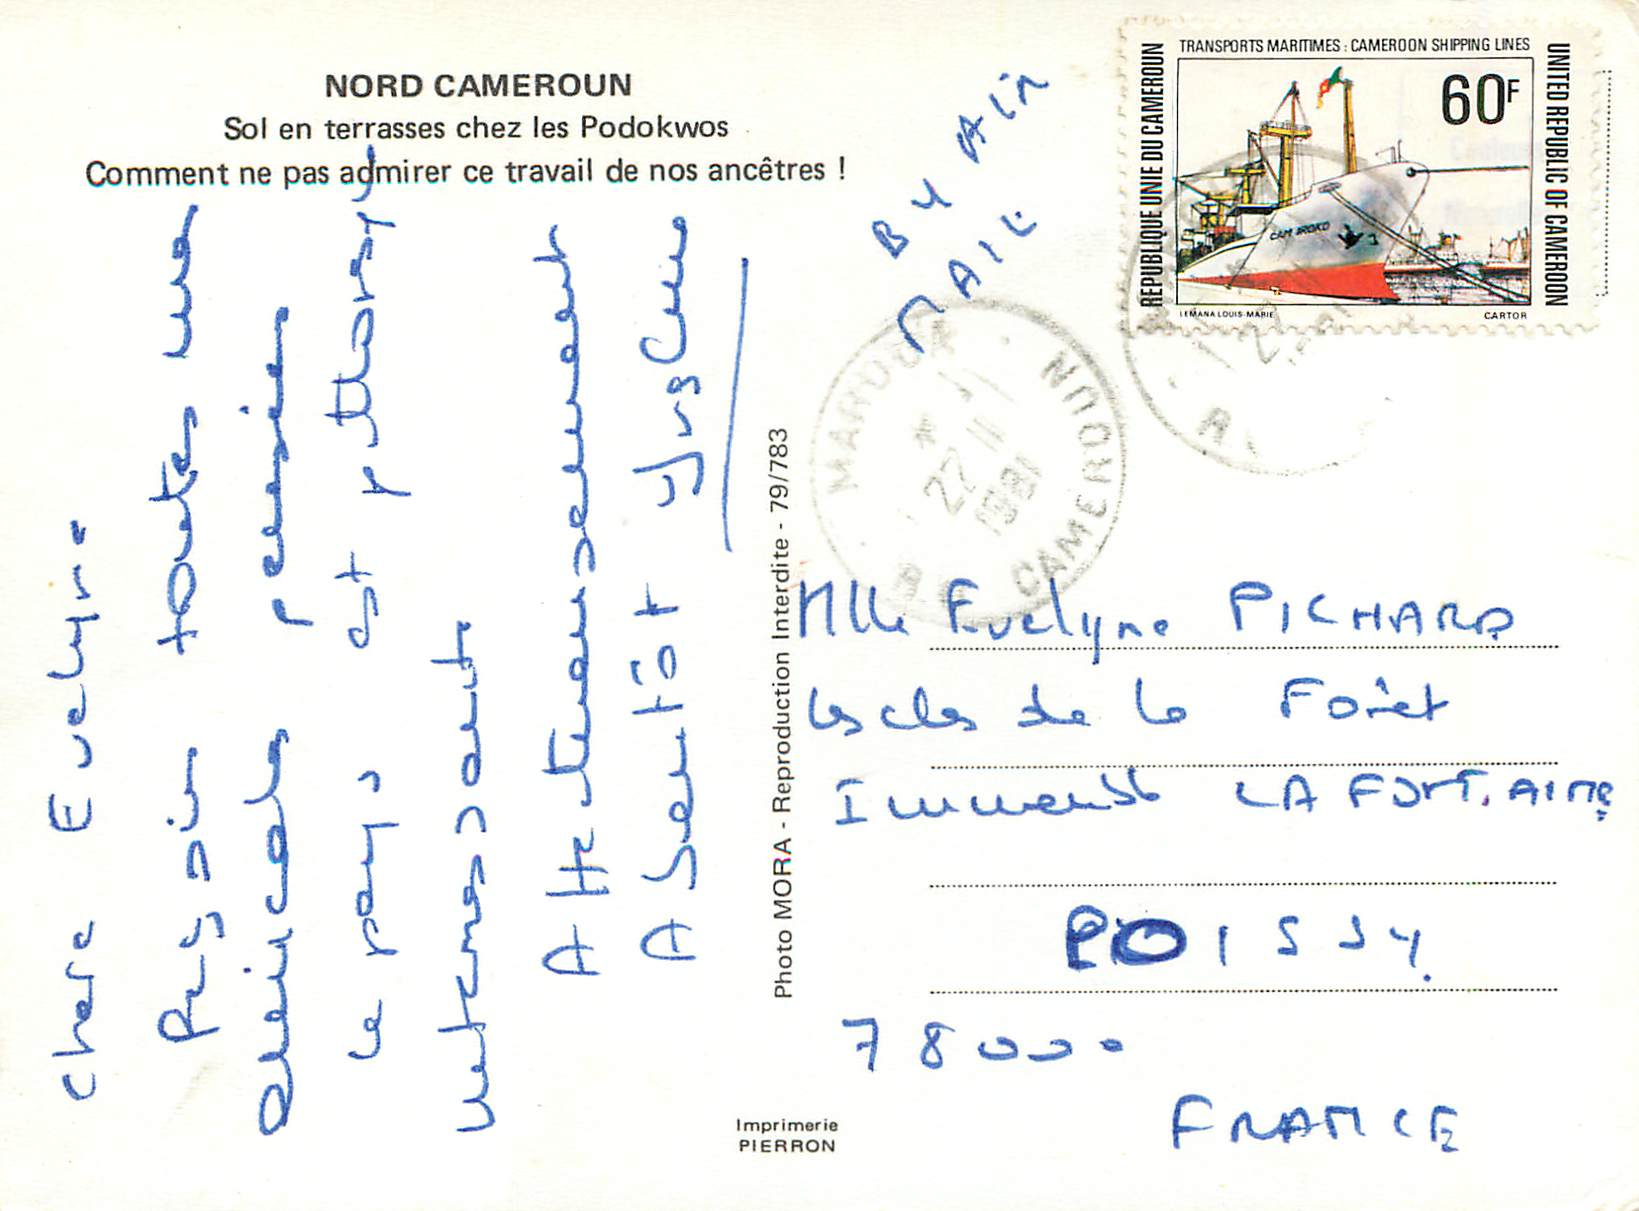 NORD CAMEROUN
Sol en terrasses chez les Podokwos
Comment ne pas admirer ce travail de nos ancêtres !
Chere Evelyne
Reçois toutes mes
amicales pensées
le pays est pittoresque
interessant
Affectueusement
A bientôt
BY AIR
MAIL
TRANSPORTS MARITIMES : CAMEROON SHIPPING LINES
REPUBLIQUE UNIE DU CAMEROUN
UNITED REPUBLIC OF CAMEROON
60F
CAM IROKO
LEMANA LOUIS-MARIE
CARTOR
MAROUA
22 11
1981
CAMEROUN
Photo MORA - Reproduction Interdite - 79/783
Mlle Evelyne PICHARD
les clos de la Forêt
Immeuble LA FONTAINE
POISSY
78000
FRANCE
Imprimerie
PIERRON